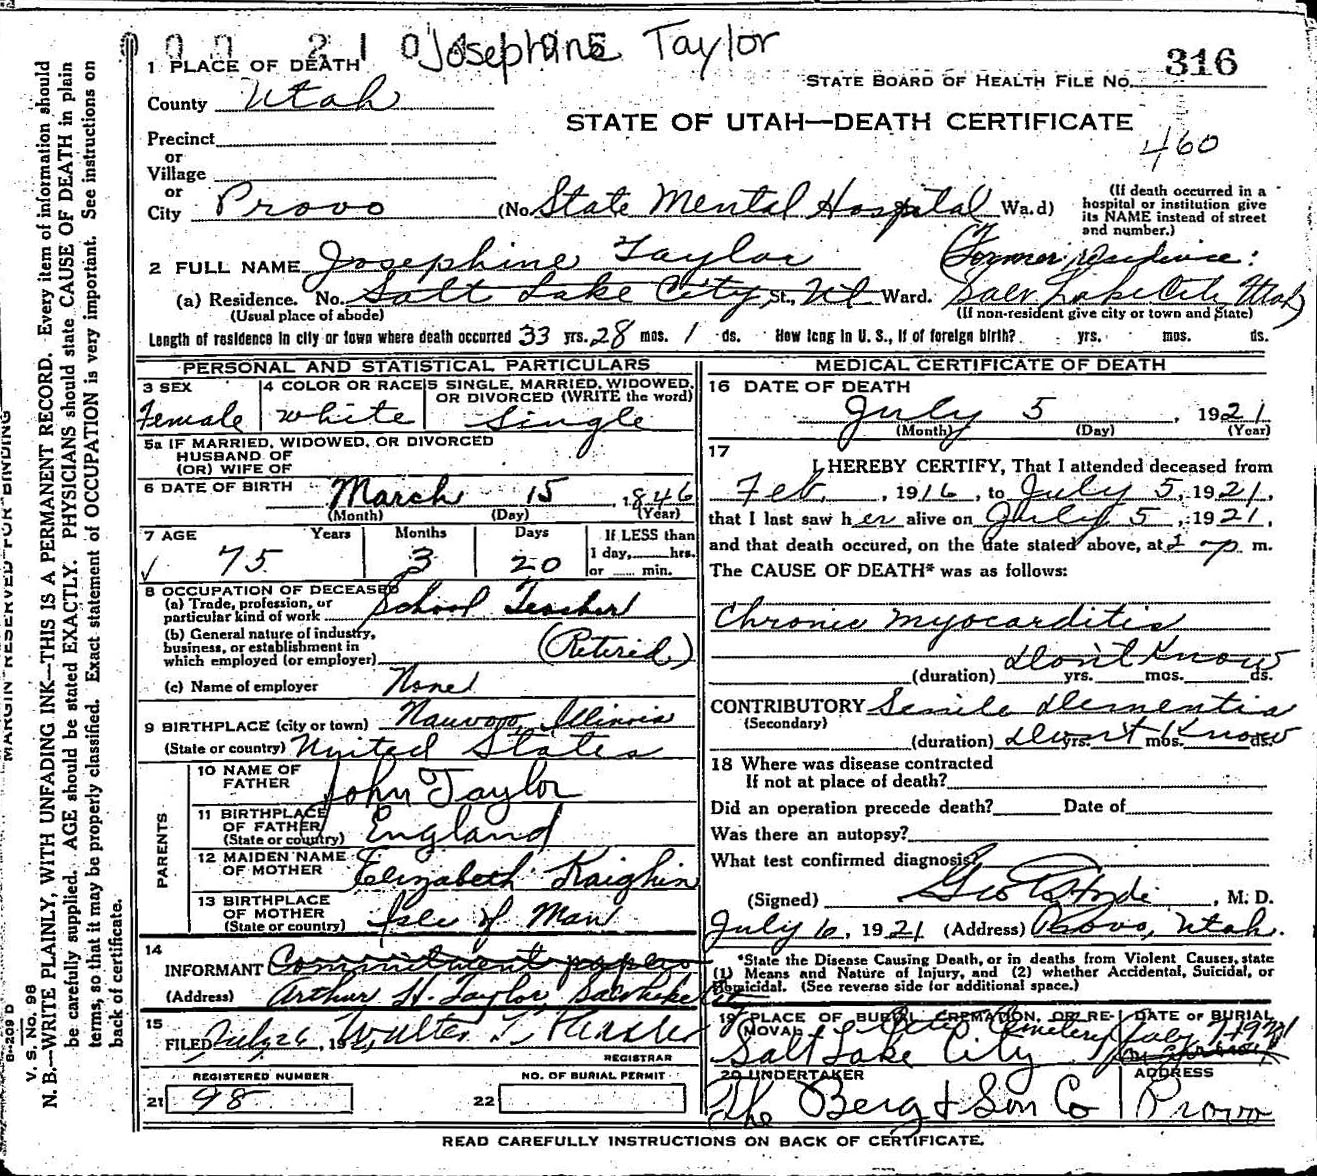 Josephine Taylor
1 PLACE OF DEATH
STATE BOARD OF HEALTH FILE No. 316
County Utah
STATE OF UTAH—DEATH CERTIFICATE
460
Precinct
or
Village
or
City Provo (No. State Mental Hospital Wa.d)
(If death occurred in a hospital or institution give its NAME instead of street and number.)
2 FULL NAME Josephine Taylor
(Former residence:
(a) Residence. No. Salt Lake City St., Ut Ward. Salt Lake City, Utah)
(Usual place of abode) (If non-resident give city or town and State)
Length of residence in city or town where death occurred 33 yrs. 28 mos. 1 ds. How long in U. S., if of foreign birth? yrs. mos. ds.
PERSONAL AND STATISTICAL PARTICULARS
3 SEX Female
4 COLOR OR RACE white
5 SINGLE, MARRIED, WIDOWED, OR DIVORCED (WRITE the word) Single
5a IF MARRIED, WIDOWED, OR DIVORCED
HUSBAND OF
(OR) WIFE OF
6 DATE OF BIRTH March 15, 1846
(Month) (Day) (Year)
7 AGE Years Months Days If LESS than
75 3 20 1 day, hrs.
or min.
8 OCCUPATION OF DECEASED
(a) Trade, profession, or
particular kind of work School Teacher
(b) General nature of industry,
business, or establishment in
which employed (or employer) (Retired)
(c) Name of employer None
9 BIRTHPLACE (city or town) Nauvoo, Illinois
(State or country) United States
PARENTS
10 NAME OF FATHER John Taylor
11 BIRTHPLACE OF FATHER (State or country) England
12 MAIDEN NAME OF MOTHER Elizabeth Kaighin
13 BIRTHPLACE OF MOTHER (State or country) Isle of Man
14
INFORMANT Commitment papers
(Address) Arthur H. Taylor, Salt Lake
15
FILED July 26, 192 Walter T.
REGISTRAR
REGISTERED NUMBER
21 98
NO. OF BURIAL PERMIT
22
MEDICAL CERTIFICATE OF DEATH
16 DATE OF DEATH
July 5, 1921
(Month) (Day) (Year)
17
I HEREBY CERTIFY, That I attended deceased from
Feb., 1916, to July 5, 1921,
that I last saw her alive on July 5, 1921,
and that death occured, on the date stated above, at p m.
The CAUSE OF DEATH* was as follows:
Chronic myocarditis
(duration) Don't Know yrs. mos. ds.
CONTRIBUTORY Senile Dementia
(Secondary)
(duration) Don't Know yrs. mos. ds.
18 Where was disease contracted
If not at place of death?
Did an operation precede death? Date of
Was there an autopsy?
What test confirmed diagnosis?
(Signed) Geo Hyde, M. D.
July 6, 1921 (Address) Provo, Utah.
*State the Disease Causing Death, or in deaths from Violent Causes, state
(1) Means and Nature of Injury, and (2) whether Accidental, Suicidal, or
Homicidal. (See reverse side for additional space.)
19 PLACE OF BURIAL, CREMATION, OR REMOVAL DATE OF BURIAL
City Cemetery July 7 1921
Salt Lake City
20 UNDERTAKER ADDRESS
The Berg & Son Co Provo
READ CAREFULLY INSTRUCTIONS ON BACK OF CERTIFICATE.
MARGIN RESERVED FOR BINDING
V. S. No. 98
B-209 D
N. B.—WRITE PLAINLY, WITH UNFADING INK—THIS IS A PERMANENT RECORD. Every item of information should
be carefully supplied. AGE should be stated EXACTLY. PHYSICIANS should state CAUSE OF DEATH in plain
terms, so that it may be properly classified. Exact statement of OCCUPATION is very important. See instructions on
back of certificate.